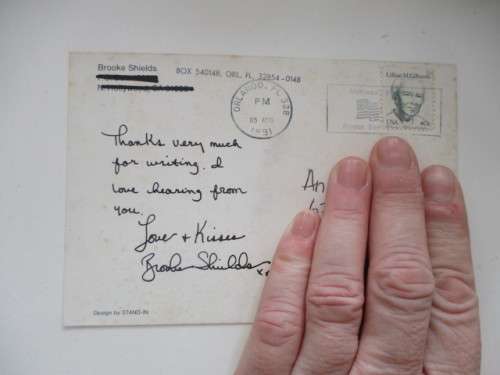 Brooke Shields
BOX 540148, ORL, FL 32854-0148
ORLANDO, FL 328
PM
1991
Lillian M. Gilbreth
USA 40c
Thanks very much
for writing. I
love hearing from
you.
Love + Kisses
Brooke Shields xx
An
Design by STAND-IN